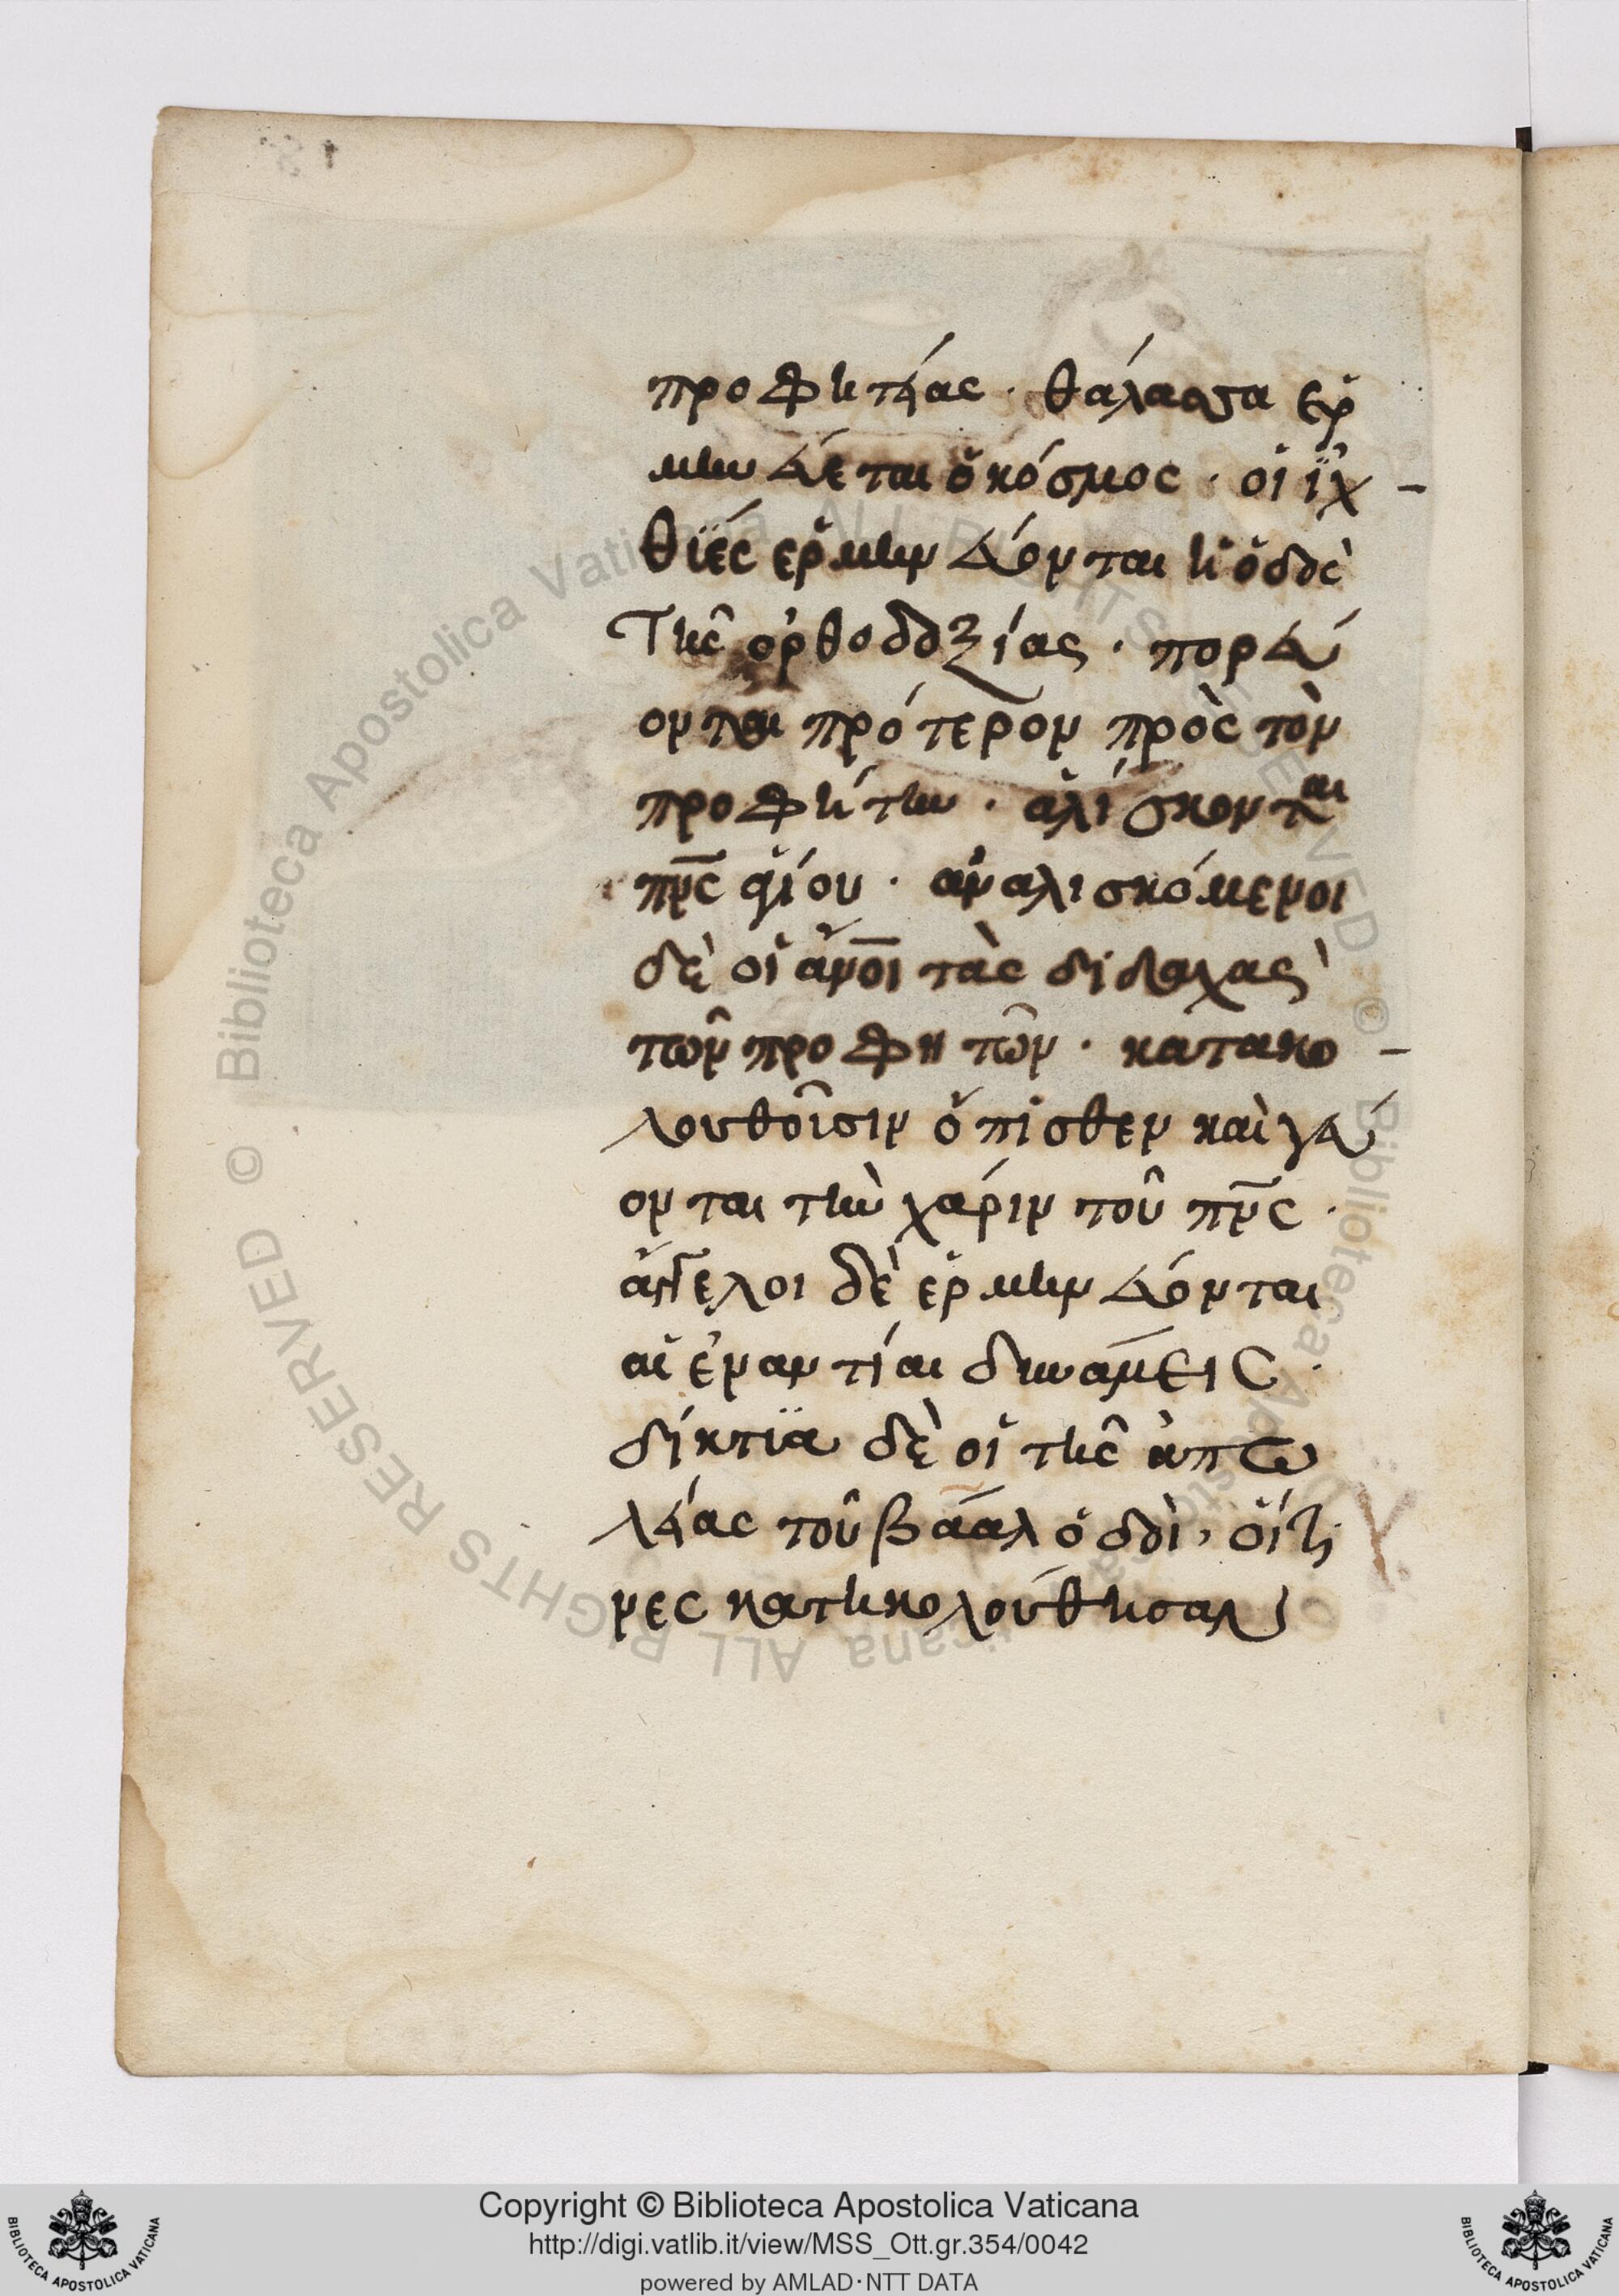 προφητείας · θάλασσα ἑρ
μηνεύεται ὁ κόσμος · οἱ ἰχ -
θϊές ἑρμηνεύονται ἡ ὁδὸ
Τῆς ὀρθοδοξίας · πορεύ
ονται πρότερον πρὸς τὸν
προφήτην · ἁλίσκονται
π̅ν̅ς̅ ἁγίου · ἀναλισκόμενοι
δὲ οἱ ἄν̅ο̅ι τὰς διδαχὰς
τῶν προφητῶν · κατακο -
λουθοῖσιν ὄπισθεν καὶ γεύ
ονται τὴν χάριν τοῦ π̅ν̅ς̅ ·
ἄγγελοι δὲ ἑρμηνεύονται
αἱ ἐναντίαι δυνάμεις ·
δίκτϊα δὲ οἱ τῆς ἀπω
λείας τοῦ βάαλ ὁδοὶ, οἵτι
νες κατηκολούθησαν
Copyright © Biblioteca Apostolica Vaticana
http://digi.vatlib.it/view/MSS_Ott.gr.354/0042
powered by AMLAD·NTT DATA
BIBLIOTECA APOSTOLICA VATICANA
BIBLIOTECA APOSTOLICA VATICANA
© Biblioteca Apostolica Vaticana ALL RIGHTS RESERVED © Biblioteca Apostolica Vaticana ALL RIGHTS RESERVED